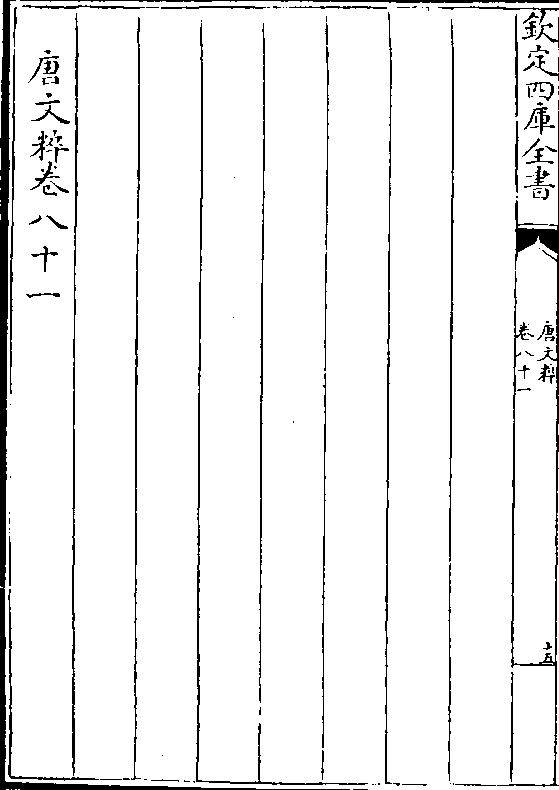 欽定四庫全書
唐文粹
卷八十一
十五
唐文粹卷八十一